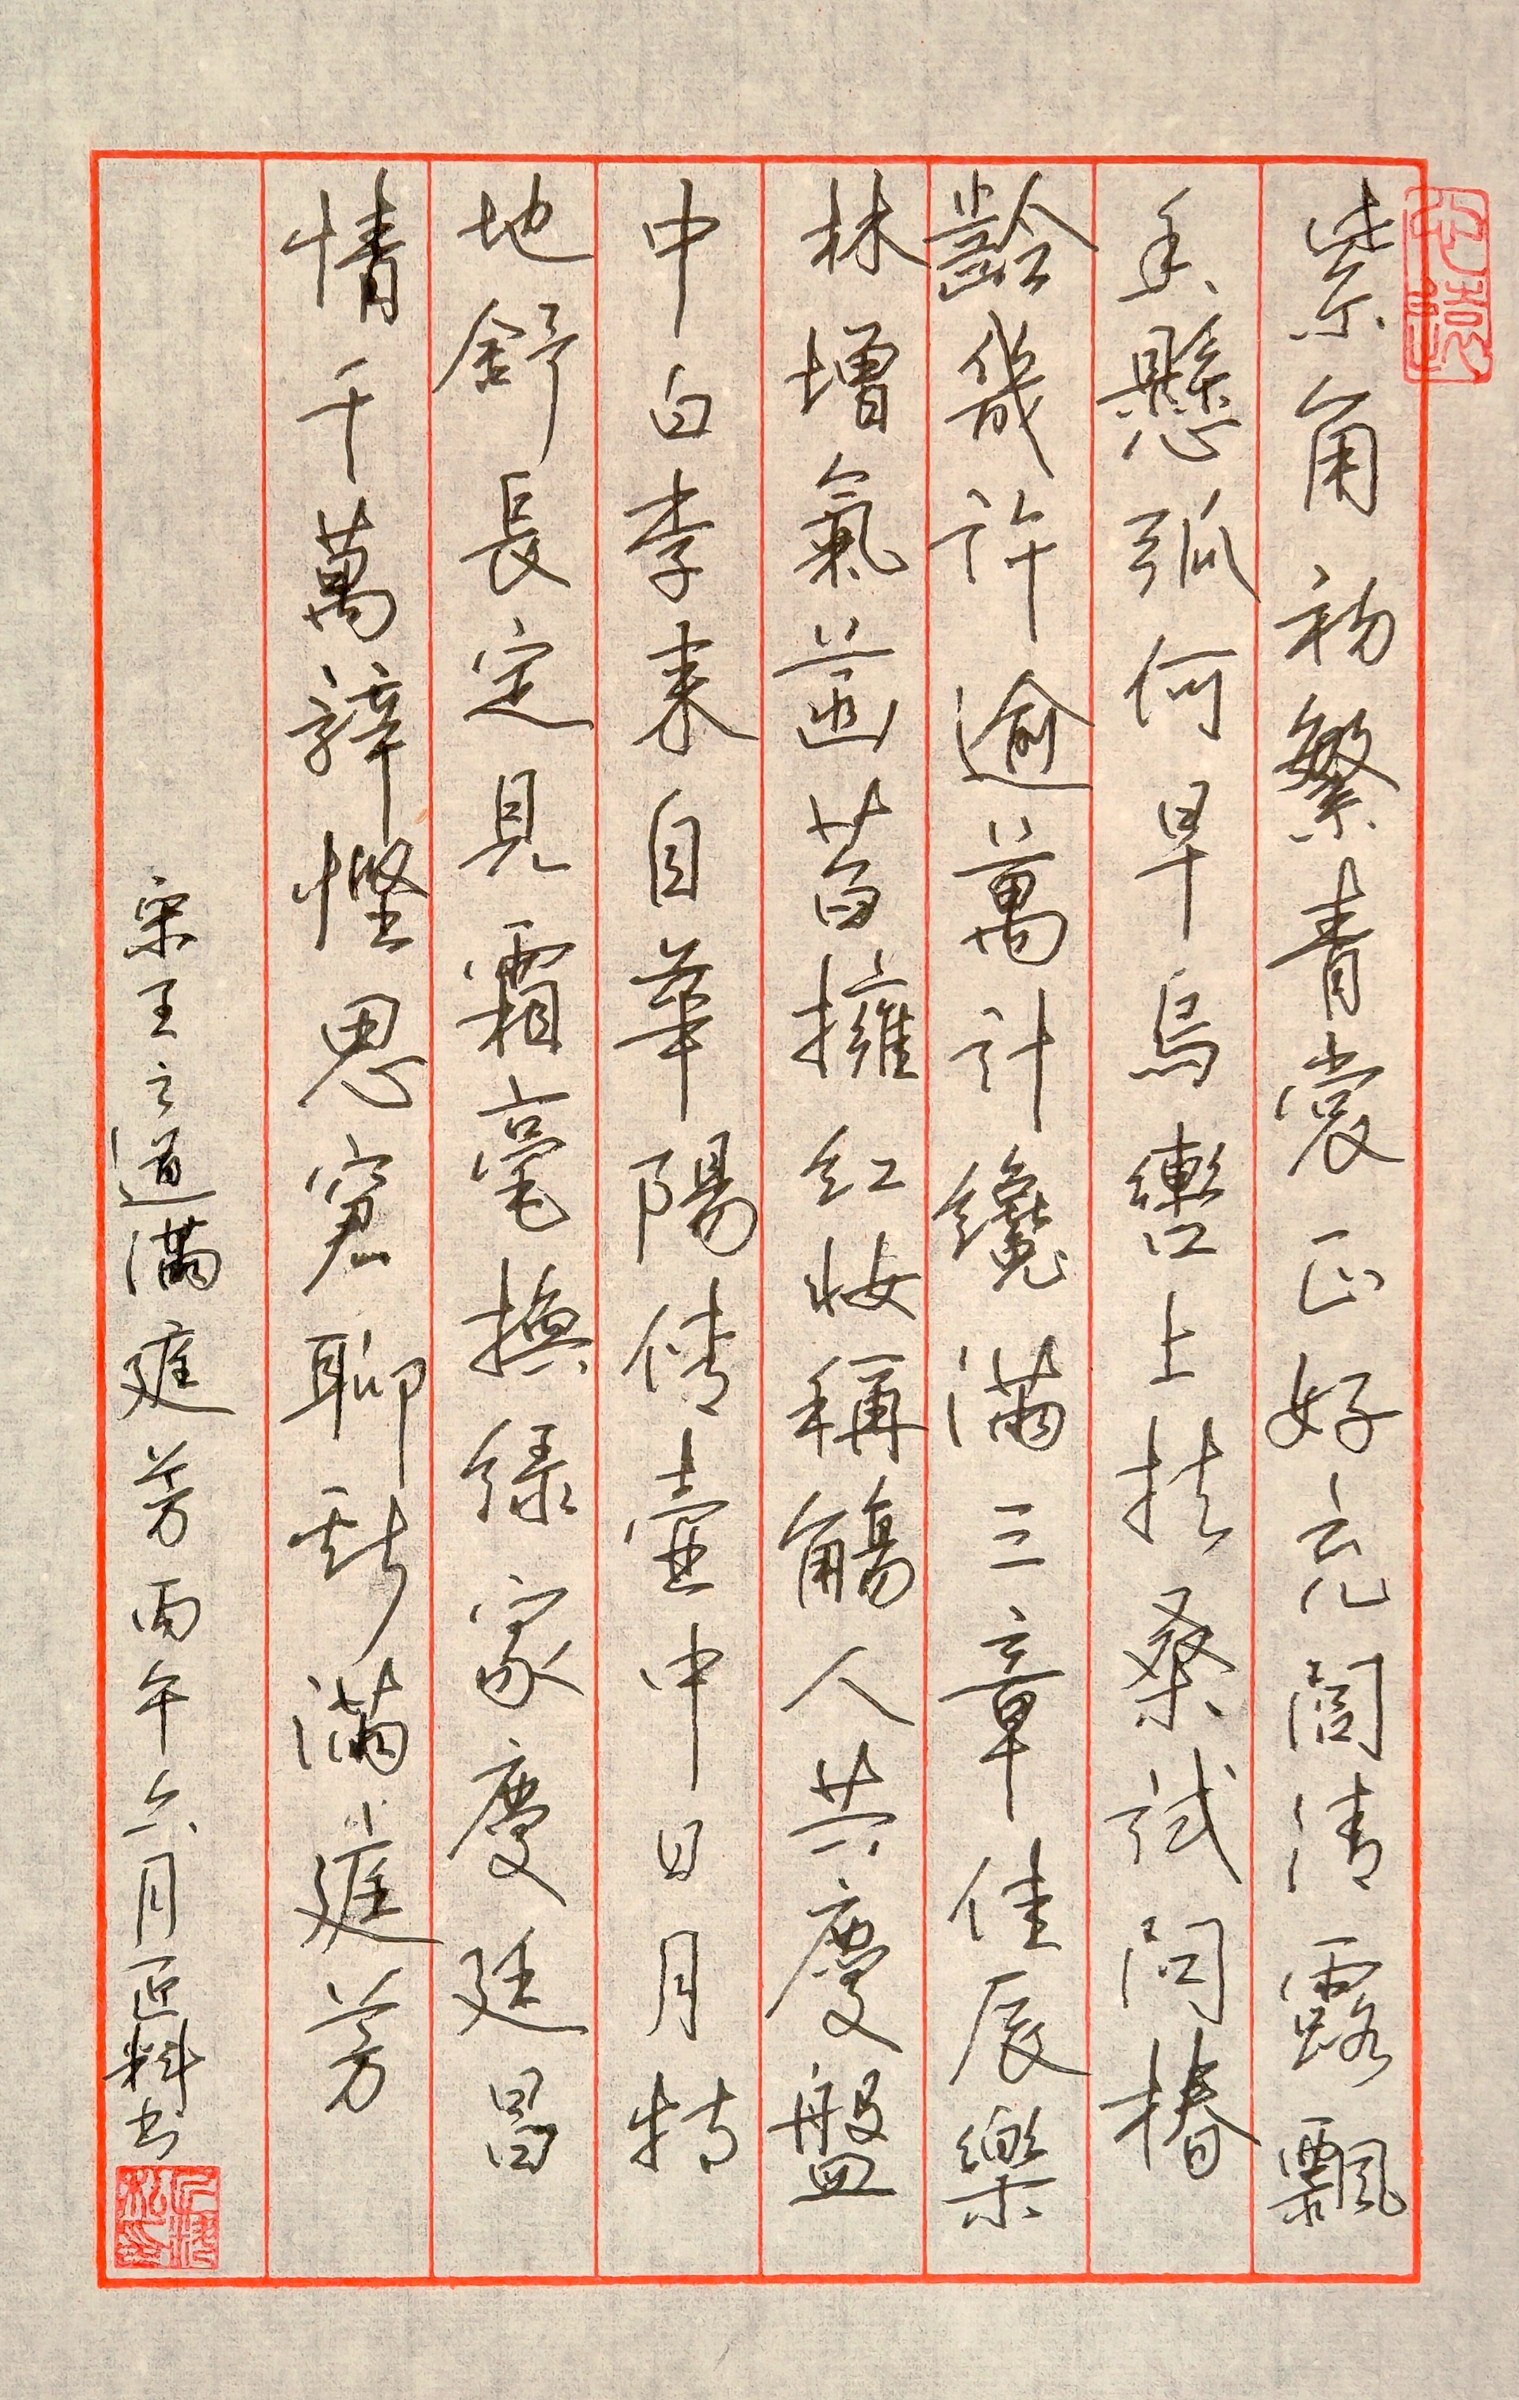 紫角初繁青裳正好清露飄
香懸弧何早烏轡上扶桑試問椿
齡幾許逾萬計纔滿三章佳辰樂
林增氣菡萏擁紅妝稱觴人共慶盤
中白李來自華陽倩壺中日月特
地舒長定見霜毫換綠家慶延昌
情千萬辭慳思窘聊斟滿庭芳
宋王之道滿庭芳丙午六月匠料书